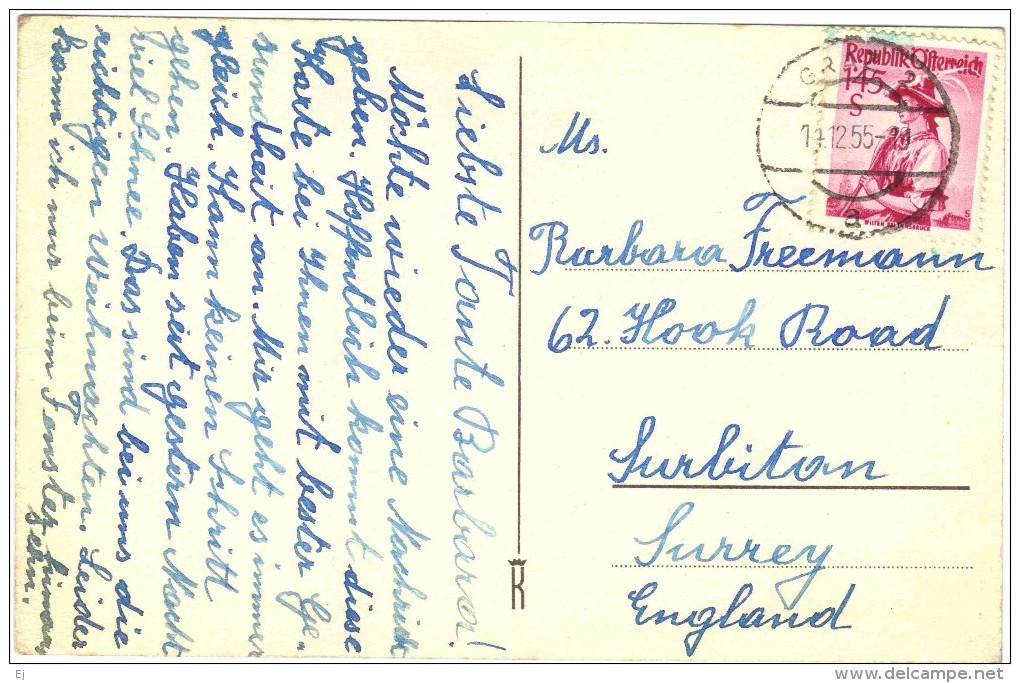 Liebste Tante Barbara!
Möchte wieder eine Nachricht
geben. Hoffentlich kommt diese
Karte bei Ihnen mit bester Ge-
sundheit an. Mir geht es immer
gleich. Kann keinen Schritt
gehen. Haben seit gestern Nacht
viel Schnee. Das sind bei uns die
richtigen Weihnachten. Leider
kann ich nur beim Fenster hinaus
sehn.
Republik Österreich
1·45
S
WILTEN BEI INNSBRUCK
GRAZ 2
12.55
a
Ms.
Barbara Freemann
62. Hook Road
Surbiton
Surrey
England
K
Ej
www.delcampe.net